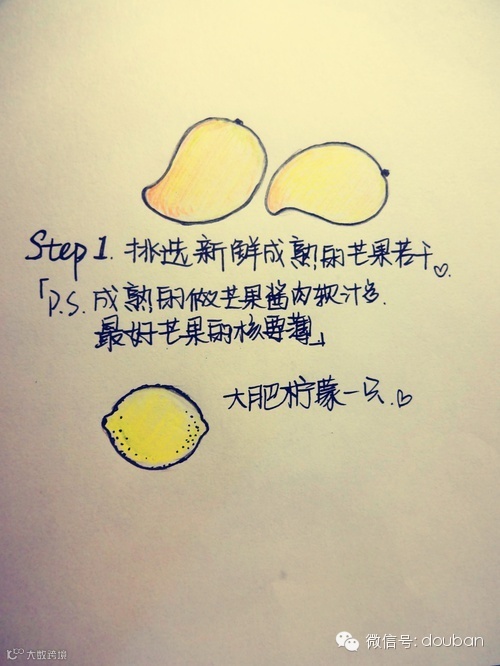 Step 1. 挑选新鲜成熟的芒果若干
「P.S. 成熟的做芒果酱肉软汁多.
最好芒果的核要薄」
大肥柠檬一只.
微信号: douban
大数跨境